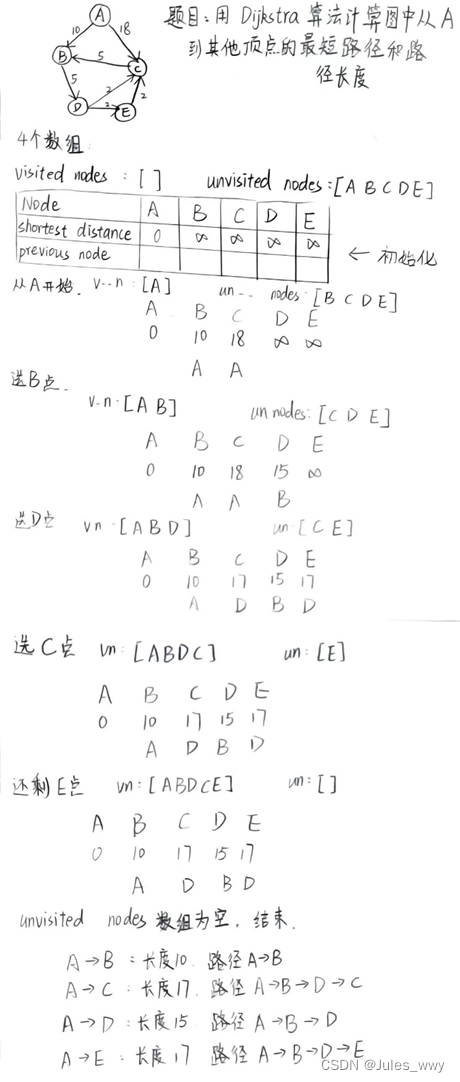 题目:用 Dijkstra 算法计算图中从A
到其他顶点的最短路径和路
径长度
A
10 18
B 5 C
5 2 2
D 2 E
4个数组:
visited nodes : [ ] unvisited nodes:[A B C D E]
Node A B C D E
shortest distance 0 ∞ ∞ ∞ ∞
previous node
← 初始化
从A开始. v--n:[A] un-- nodes:[B C D E]
A B C D E
0 10 18 ∞ ∞
A A
选B点.
v-n-[A B] un nodes:[C D E]
A B C D E
0 10 18 15 ∞
A A B
选D点 vn:[A B D] un:[C E]
A B C D E
0 10 17 15 17
A D B D
选C点 vn:[ABDC] un:[E]
A B C D E
0 10 17 15 17
A D B D
还剩E点 vn:[ABDCE] un:[ ]
A B C D E
0 10 17 15 17
A D B D
unvisited nodes 数组为空,结束.
A→B :长度10. 路径 A→B
A→C :长度17. 路径 A→B→D→C
A→D :长度15 路径 A→B→D
A→E :长度17 路径 A→B→D→E
CSDN @Jules_wwy